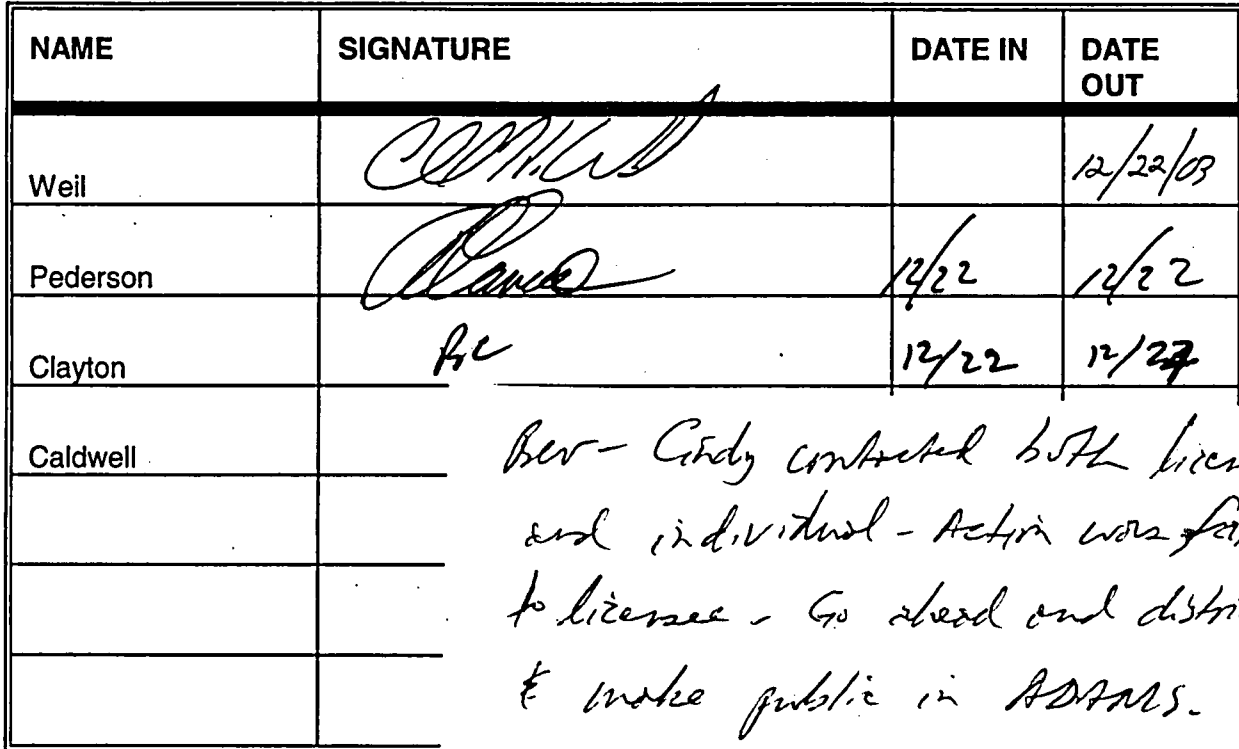 NAME SIGNATURE DATE IN DATE OUT
Weil 12/22/03
Pederson 12/22 12/22
Clayton 12/22
Caldwell
Bev - Cindy contacted both
and individual - Action was
to licensee - Go ahead and
& make public in ADAMS.